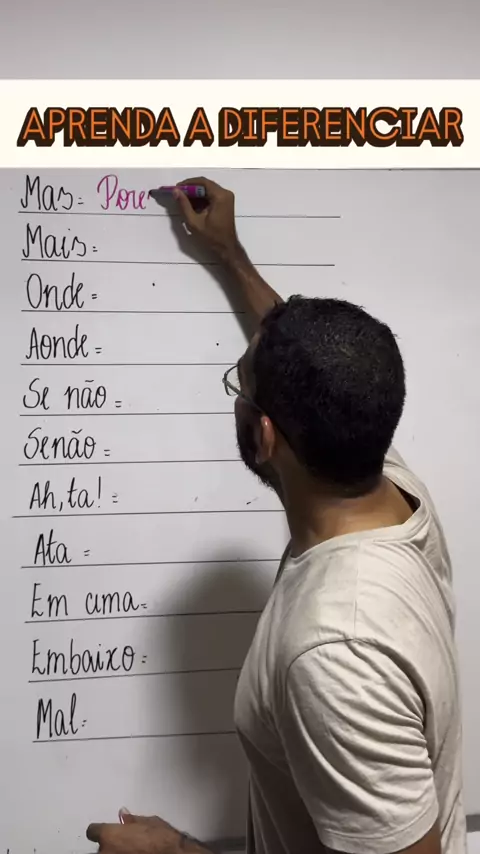 APRENDA A DIFERENCIAR
Mas= Pore
Mais=
Onde=
Aonde=
Se não=
Senão=
Ah, ta!=
Ata=
Em cima=
Embaixo=
Mal=